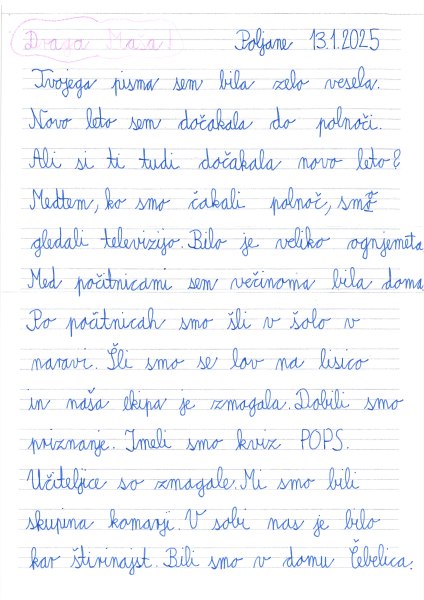 Draga Maša! Poljane 13.1.2025
Tvojega pisma sem bila zelo vesela.
Novo leto sem dočakala do polnoči.
Ali si ti tudi dočakala novo leto?
Medtem, ko smo čakali polnoč, smo
gledali televizijo. Bilo je veliko ognjemeta
Med počitnicami sem večinoma bila doma.
Po počitnicah smo šli v šolo v
naravi. Šli smo se lov na lisico
in naša ekipa je zmagala. Dobili smo
priznanje. Imeli smo kviz POPS.
Učiteljice so zmagale. Mi smo bili
skupina komarji. V sobi nas je bilo
kar štirinajst. Bili smo v domu Čebelica.